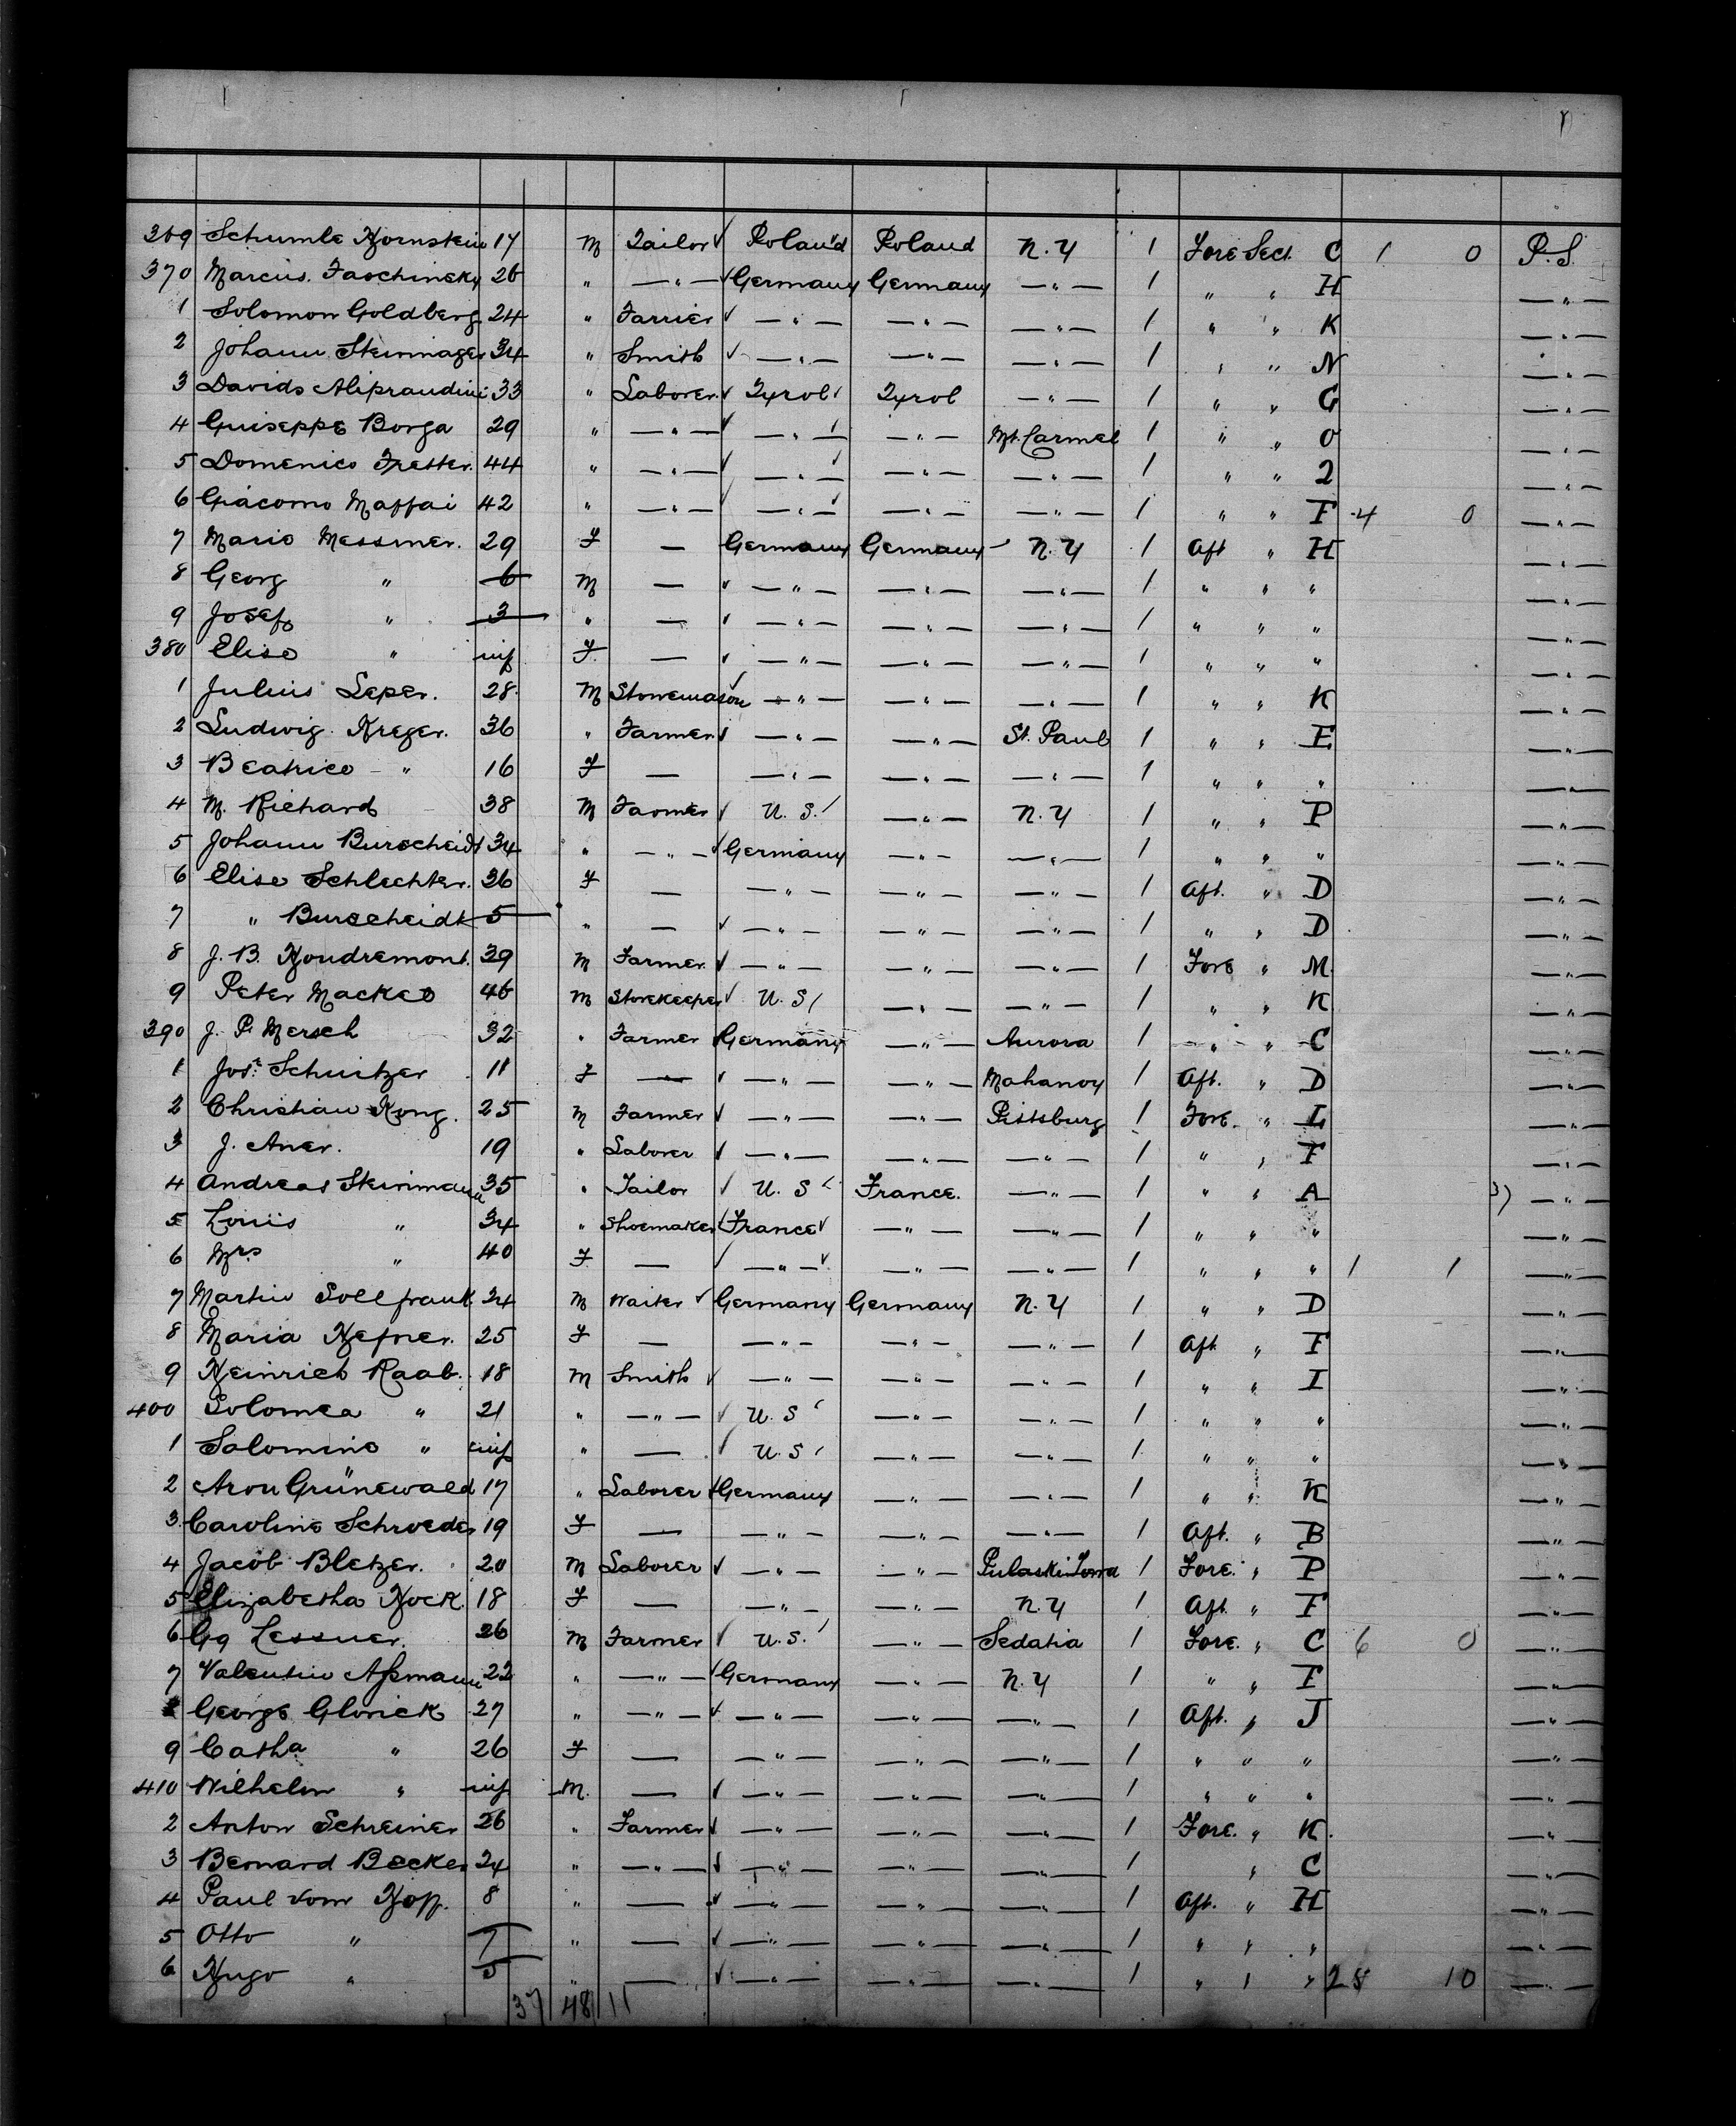 369 Schumle Hornstein 17 M Tailor Poland Poland N.Y 1 Fore Sect. C 1 0 P.S.
370 Marcus. Faschinsky 26 " —"— Germany Germany —"— 1 " " H —"—
1 Solomon Goldberg 24 " Farrier —"— —"— —"— 1 " " K —"—
2 Johann Steinmager 34 " Smith —"— —"— —"— 1 " " N —"—
3 Davids Aliprandini 33 " Laborer Tyrol Tyrol —"— 1 " " G —"—
4 Guiseppe Borga 29 " —"— —"— —"— Mt. Carmel 1 " " O —"—
5 Domenico Fretter. 44 " —"— —"— —"— —"— 1 " " 2 —"—
6 Giacomo Maffai 42 " —"— —"— —"— —"— 1 " " F 4 0 —"—
7 Marie Messmer. 29 F — Germany Germany N.Y 1 Aft " H —"—
8 Georg " 6 M — —"— —"— —"— 1 " " " —"—
9 Josef " 3 " — —"— —"— —"— 1 " " " —"—
380 Elise " inf F. — —"— —"— —"— 1 " " " —"—
1 Julius Leper. 28 M Stonemason —"— —"— —"— 1 " " K —"—
2 Ludwig Kreger. 36 " Farmer —"— —"— St. Paul 1 " " E —"—
3 Beatrice " 16 F — —"— —"— —"— 1 " " " —"—
4 M. Richard 38 M Farmer U. S. —"— N.Y 1 " " P —"—
5 Johann Burscheidt 34 " —"— Germany —"— —"— 1 " " " —"—
6 Elise Schlechter. 26 F — —"— —"— —"— 1 Aft. " D —"—
7 " Burscheidt 5 " — —"— —"— —"— 1 " " D —"—
8 J. B. Houdremont. 39 M Farmer —"— —"— —"— 1 Fore " M. —"—
9 Peter Mackeo 46 M Storekeeper U. S —"— —"— 1 " " K —"—
390 J. P. Mersch 32 " Farmer Germany —"— Aurora 1 " " C —"—
1 Jos. Schnitzer 11 F — —"— —"— Mahanoy 1 Aft. " D —"—
2 Christian Kong. 25 M Farmer —"— —"— Pittsburg 1 Fore. " L —"—
3 J. Aner. 19 " Laborer —"— —"— —"— 1 " " F —"—
4 Andreas Steinmann 35 " Tailor U. S France. —"— 1 " " A —"—
5 Louis " 34 " Shoemaker France —"— —"— 1 " " " —"—
6 Mrs " 40 F — —"— —"— —"— 1 " " " 1 1 —"—
7 Martin Sollfrank 24 M Waiter Germany Germany N.Y 1 " " D —"—
8 Maria Hefner. 25 F — —"— —"— —"— 1 Aft " F —"—
9 Heinrich Raab. 18 M Smith —"— —"— —"— 1 " " I —"—
400 Solomea " 21 " —"— U. S —"— —"— 1 " " " —"—
1 Salomine " inf " — U. S —"— —"— 1 " " " —"—
2 Aron Grünewald 17 " Laborer Germany —"— —"— 1 " " K —"—
3 Caroline Schroeder 19 F — —"— —"— —"— 1 Aft. " B —"—
4 Jacob Bletzer. 20 M Laborer —"— —"— Pulaski Iowa 1 Fore. " P —"—
5 Elizabetha Hock. 18 F — —"— —"— N.Y 1 Aft. " F —"—
6 Gg Lessner. 26 M Farmer U.S. —"— Sedalia 1 Fore. " C 6 0 —"—
7 Valentin Aßmann 22 " —"— Germany —"— N.Y 1 " " F —"—
8 George Glorick 27 " —"— —"— —"— —"— 1 Aft. " J —"—
9 Catha " 26 F — —"— —"— —"— 1 " " " —"—
410 Wilhelm " inf M. — —"— —"— —"— 1 " " " —"—
2 Anton Schreiner 26 " Farmer —"— —"— —"— 1 Fore. " K. —"—
3 Bernard Becker 24 " —"— —"— —"— —"— 1 " C —"—
4 Paul vom Hoff. 8 " — —"— —"— —"— 1 Aft. " H —"—
5 Otto " 7 " — —"— —"— —"— 1 " " " —"—
6 Hugo " 5 " — —"— —"— —"— 1 " " " 28 10 —"—
37 48 11